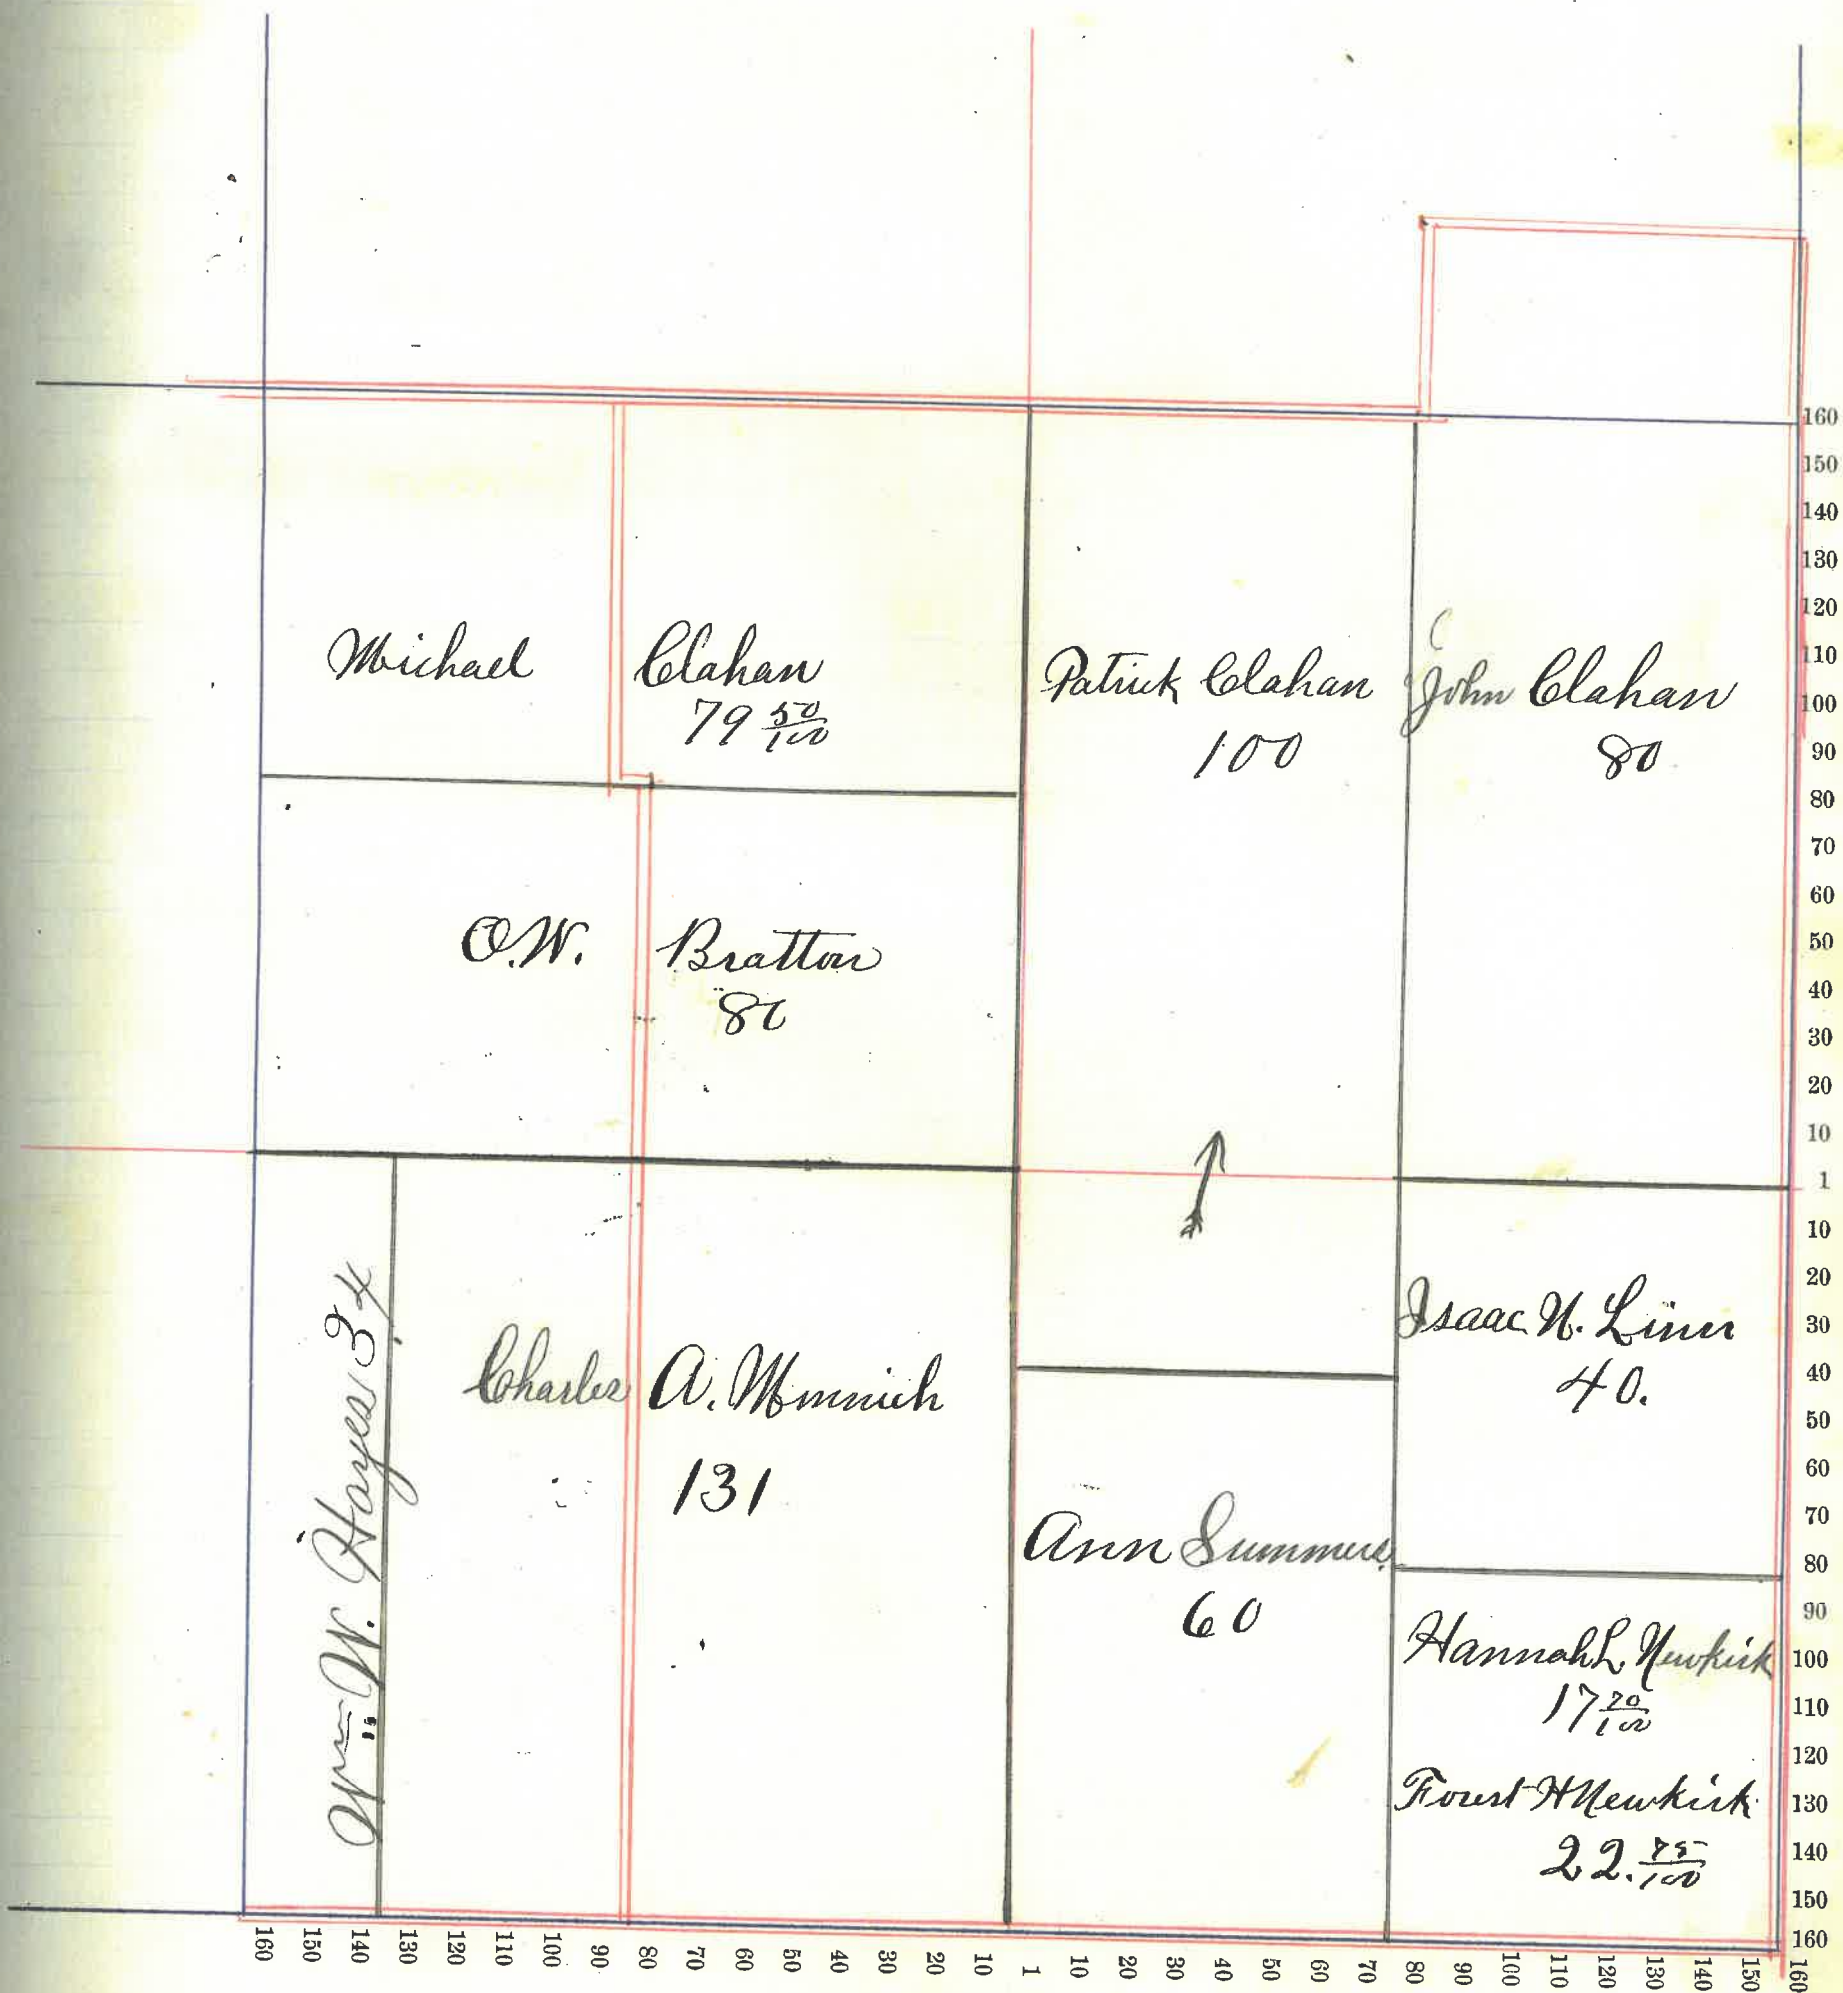 Michael Clahan
79 50/100
Patrick Clahan
100
John Clahan
80
O.W. Bratton
80
Wm W. Hayes 34
Charles A.
131
Isaac N. Linn
40.
Ann Summers
60
Hannah L. Newkirk
17 20/100
Forest H Newkirk
22. 75/100
160
150
140
130
120
110
100
90
80
70
60
50
40
30
20
10
1
10
20
30
40
50
60
70
80
90
100
110
120
130
140
150
160
160 150 140 130 120 110 100 90 80 70 60 50 40 30 20 10 1 10 20 30 40 50 60 70 80 90 100 110 120 130 140 150 160